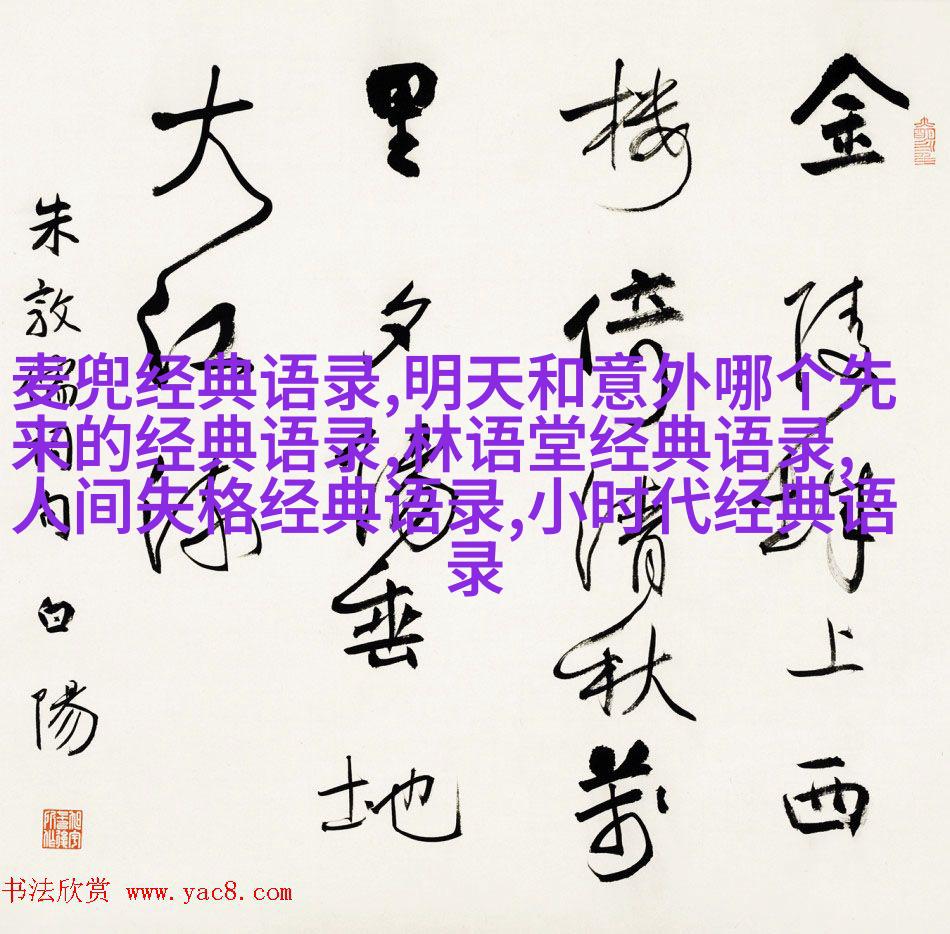 金陵城上西
楼倚清秋萬
里夕陽垂地
大江流
朱敦儒 白陽
麦兜经典语录,明天和意外哪个先
来的经典语录,林语堂经典语录,
人间失格经典语录,小时代经典语
录
书法欣赏 www.yac8.com